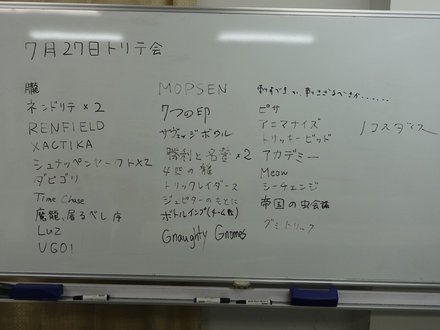 7月27日トリテ会
朧
ネンドリテ×2
RENFIELD
XACTIKA
シュナッペンヤークト×2
ダビゴリ
Time Chase
魔龍、屠るべし 序
Luz
UGO!
MOPSEN
7つの印
サヴェッジボウル
勝利と名誉×2
4匹の
トリックレイダース
ジュピターのもとに
ボトルインプ(チーム戦)
Gnaughty Gnomes
刺すべきか、刺さざるべきか......
ピザ
アニマナイズ
トリッキービッド
アカデミー
Meow
シーチェンジ
帝国の虫会議
グミトリック
ノコスダイス